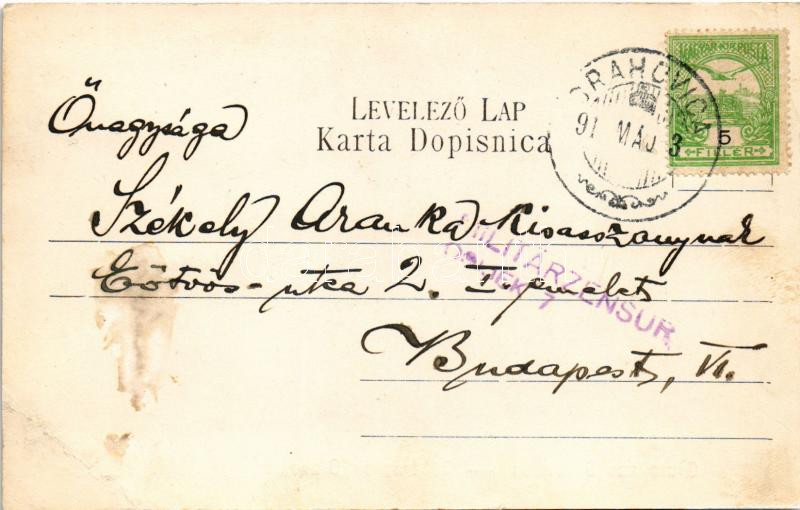 MAGYAR KIR. POSTA
5
FILLÉR
ORAHOVICA
91 MÁJ. 3
LEVELEZŐ LAP
Karta Dopisnica
Őnagysága
Székely Aranka Kisasszonynak
Eötvös-utca 2. I. emelet
Budapest, VI.
MILITÄRZENSUR
OSIJEK 7